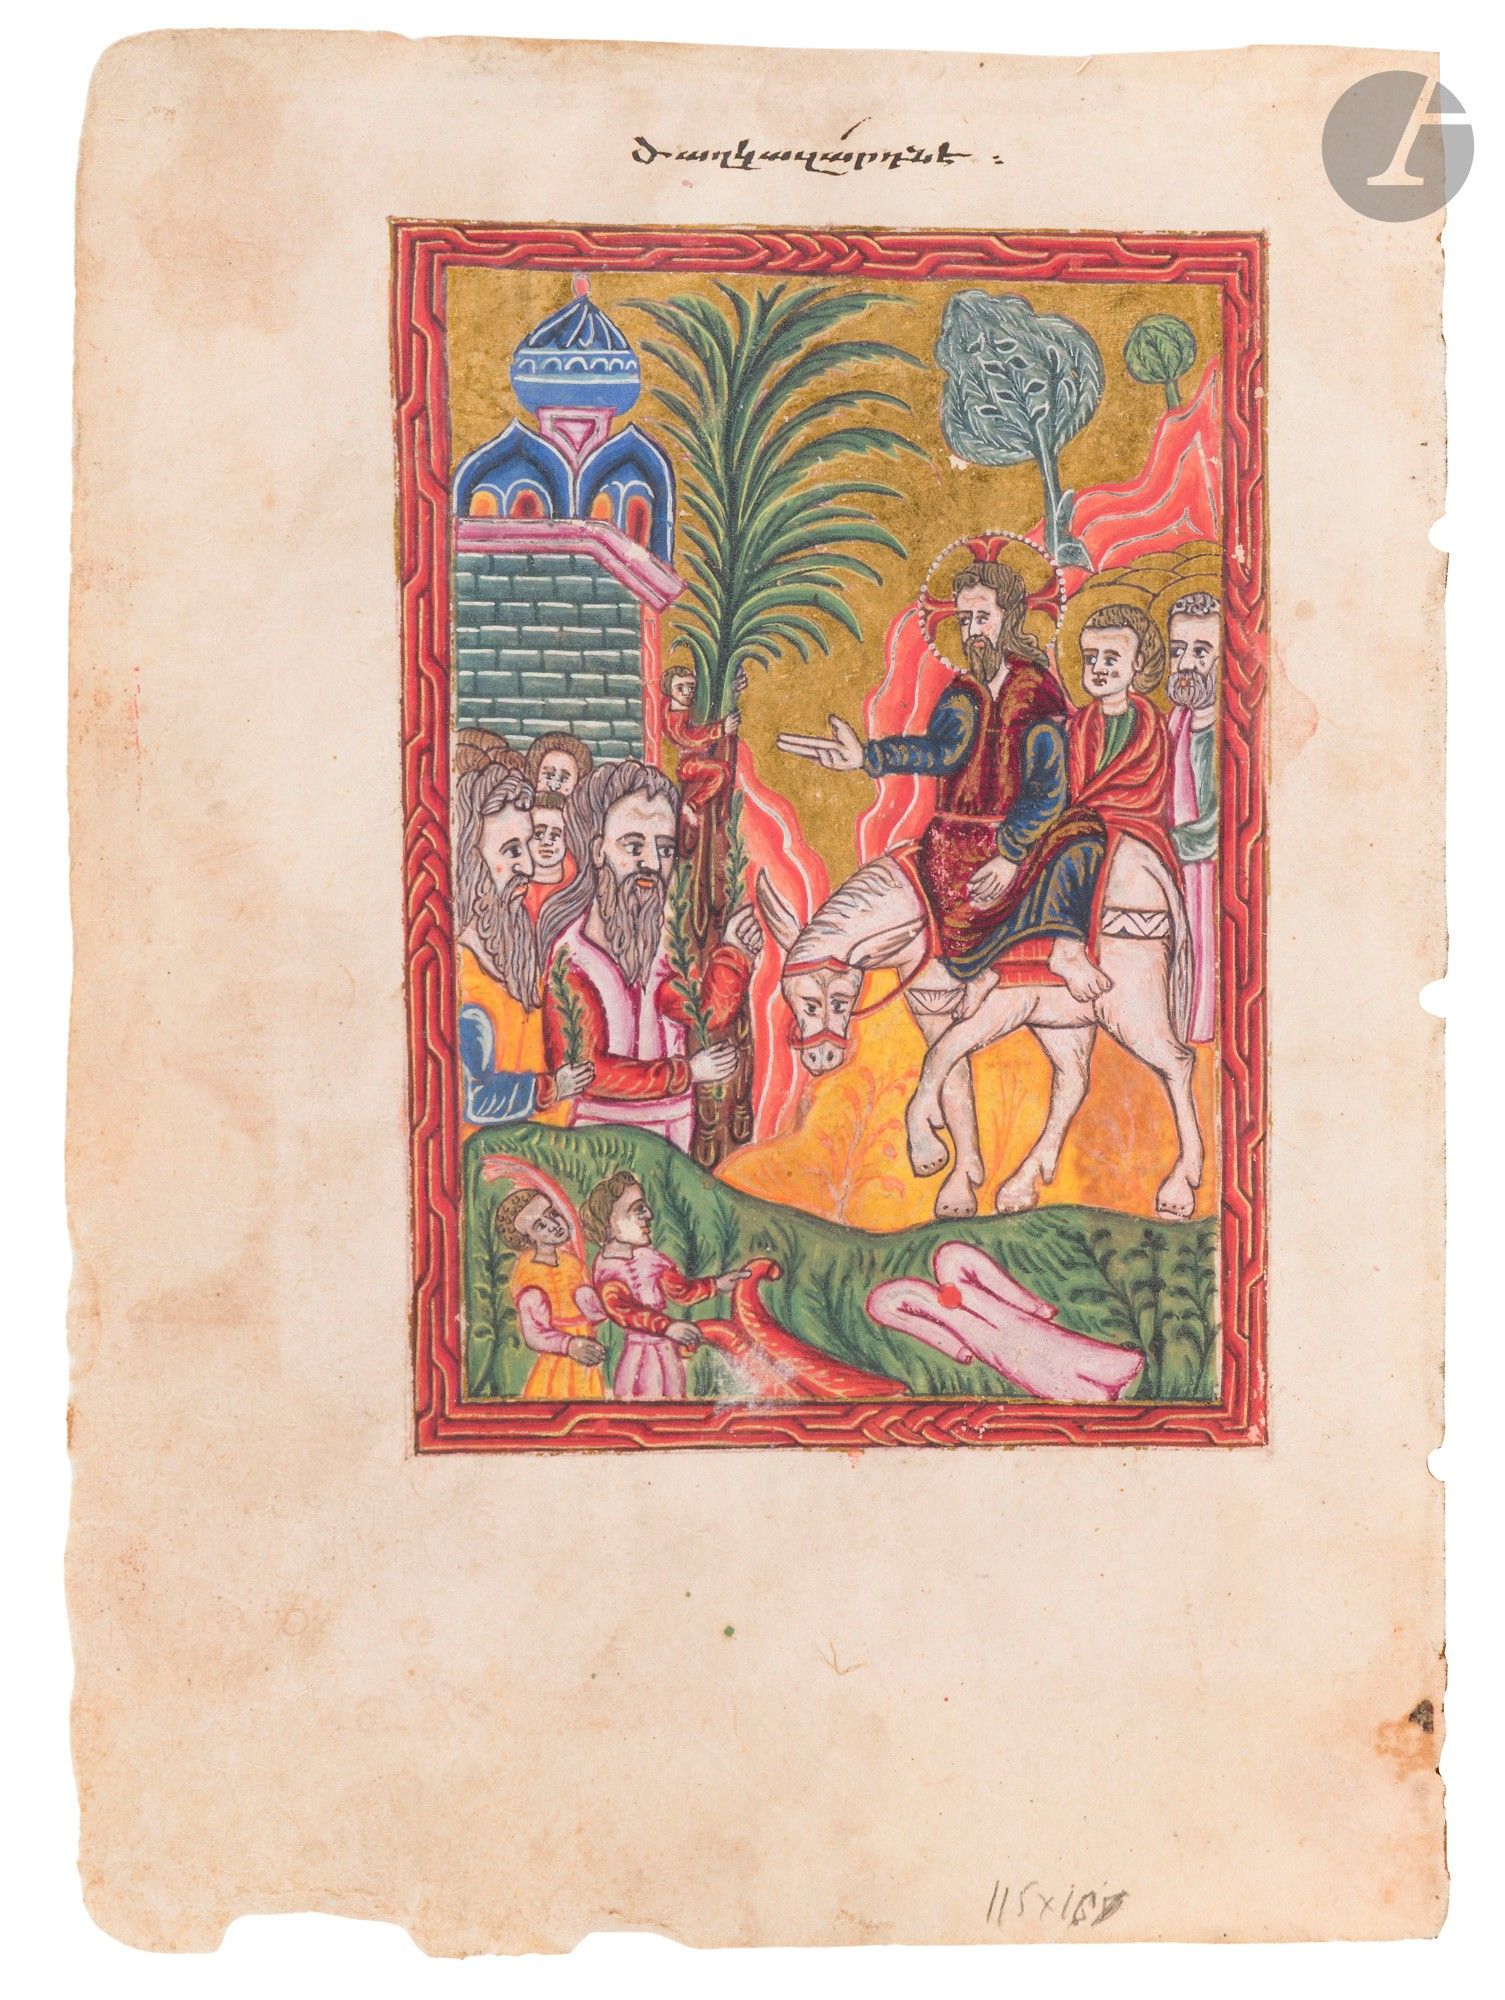 Ծաղկազարդնէ :
115x167